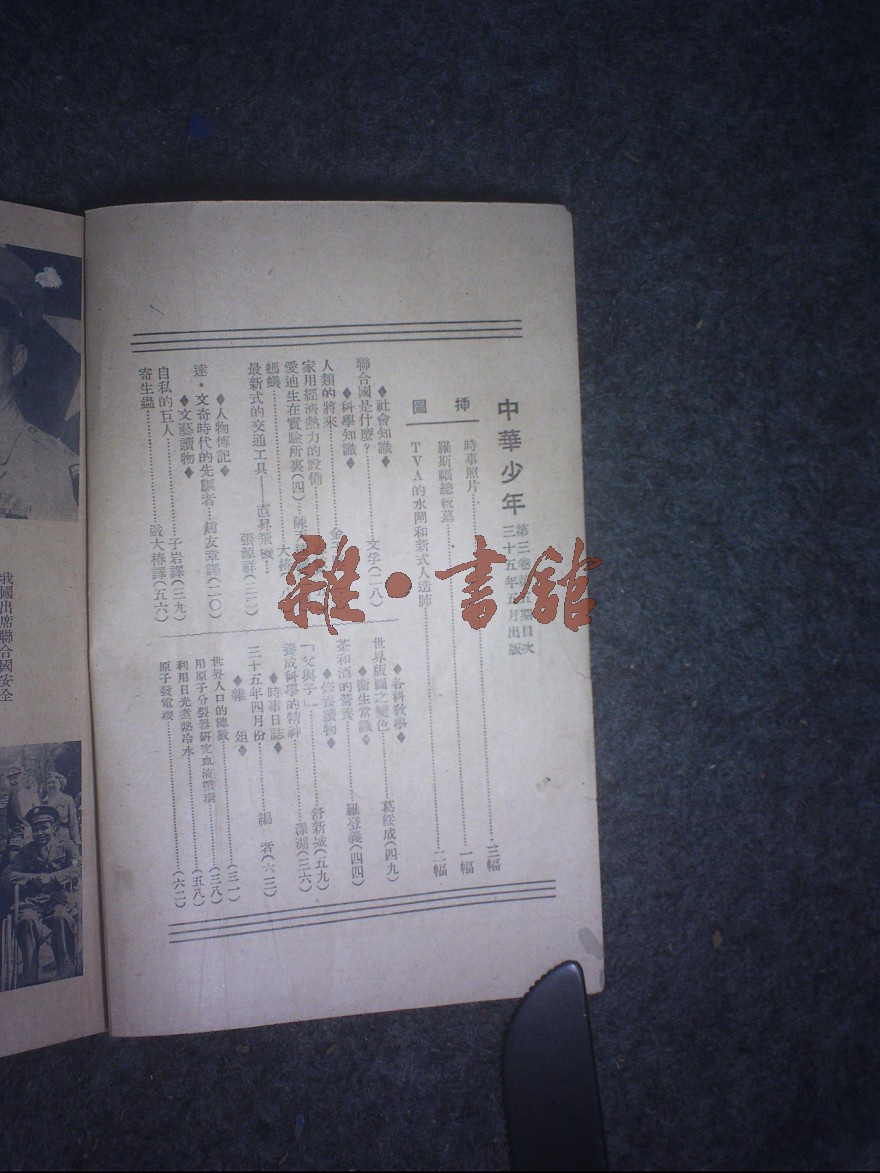 中華少年
第三卷第 期目次
三十五年五月出版
插圖
時事照片……三幅
羅斯福總統墓……一幅
TVA的水閘和新式人造肺……二幅
◆社會知識◆
聯合國是什麼？……文孚(二八)
◆科學知識◆
人類的將來……金
家用經濟熱力的設備……
愛迪生在實驗所裏(四)…陳
螞蟻……大椿
最新式的交通工具——直昇飛機…張源祥(二二)
◆人物傳記◆
達·文奇時代的先驅者…趙友章譯(二〇)
◆文藝讀物◆
自私的巨人……子岩譯(三九)
寄生蟲……嚴大椿譯(五六)
◆各科教學◆
世界版圖之變色……葛綏成(四九)
◆衞生常識◆
茶和酒的營養……羅登義(四四)
◆修養讀物◆
「父與子」……舒新城(五九)
養成科學的精神……澤湖(三六)
◆時事日誌◆
三十五年四月份……編者(六三)
◆雜俎◆
世界人口的總數……(三一)
用原子分裂器研究血液循環……(三八)
利用日光煮熱冷水……(五八)
原子發電機……(六二)
我國出席聯合國安全
雜·書館